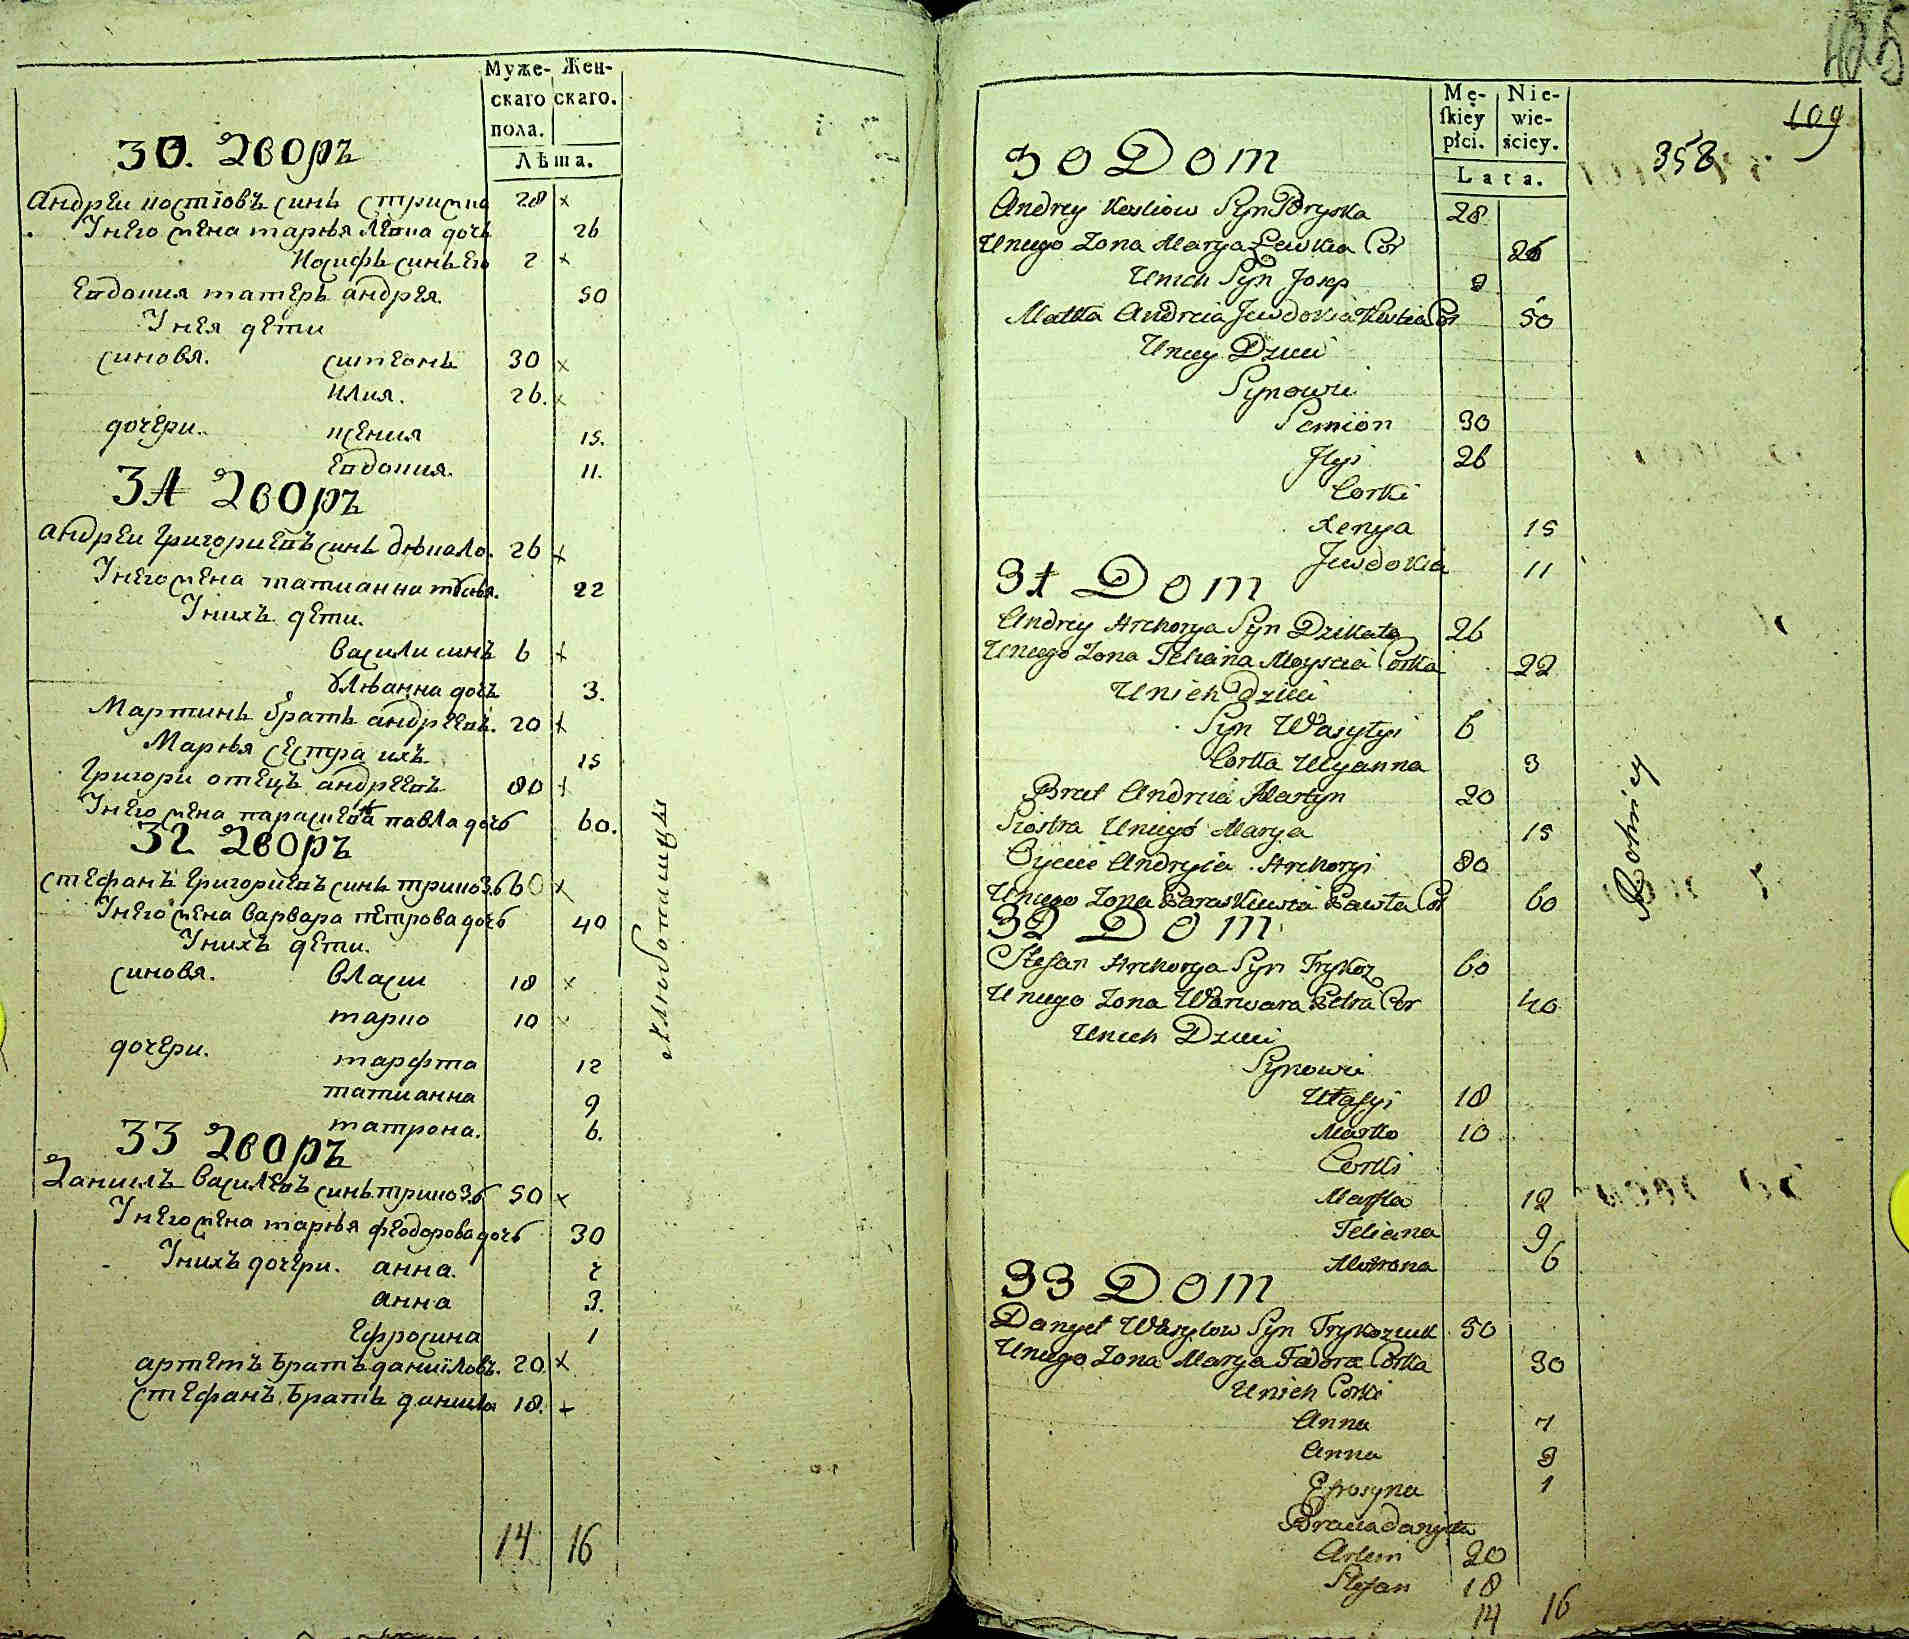 Муже- Жен-
скаго скаго.
пола.
Лѣта.
30. Дворъ
Андреи костювъ синъ 28 х
Унего жена марья Левка дочь 26
Иосифъ синъ его 2 х
Евдокия матеръ андрея. 50
Унея дети
синовя. симеонъ 30 х
илия. 26. х
дочери. ксения 15.
Евдокия. 11.
31 Дворъ
андреи григориевъ синъ 26 х
Унего жена татианна 22
Унихъ дети.
Васили синъ 6 х
Улянна дочь 3.
Мартинъ братъ андреевъ. 20 х
Марья сестра ихъ 15
Григори отецъ андреевъ 80 х
Унего жена параскева павла дочь 60.
32 Дворъ
стефанъ григориевъ синъ 60 х
Унего жена варвара петрова дочь 40
Унихъ дети.
синовя. власи 18 х
марко 10 х
дочери. марфта 12
татианна 9
матрона. 6.
33 Дворъ
Даниилъ василевъ синъ 50 х
Унего жена марья феодорова дочь 30
Унихъ дочери. анна. 7
анна 3.
Ефросина 1
артемъ братъ даниловъ. 20 х
стефанъ братъ данила 18. х
14 16
125
109
358
Mę- Nie-
skiey wie-
płci. ściey.
Lata.
30 Dom
Andrey Kostiow Syn 28
Uniego Zona Marya Lewka Cor 26
Unich Syn Josep 2
Matka Andreia Jewdokia Kostia Cor 50
Uniey Dzieci
Synowie
Semion 30
Ilyi 26
Corki
Xenya 15
Jewdokia 11
31 Dom
Andrey Hrehorya Syn 26
Uniego Zona Teliana Corka 22
Unich Dzieci
Syn Wasylyi 6
Corka Ulyanna 3
Brat Andreia Martyn 20
Siostra Uniego Marya 15
Oyciec Andryia Hrehoryi 80
Uniego Zona Paraskewia Pawła Cor 60
32 Dom
Stefan Hrehorya Syn 60
Uniego Zona Warwara Petra Cor 40
Unich Dzieci
Synowie
Ułasyi 18
Marko 10
Corki
Marfta 12
Teliana 9
Motrona 6
33 Dom
Danyel Wasylow Syn 50
Uniego Zona Marya Fadora Corka 30
Unich Corki
Anna 7
Anna 3
Efrosyna 1
Bracia Danyela
Artem 20
Stefan 18
14 16